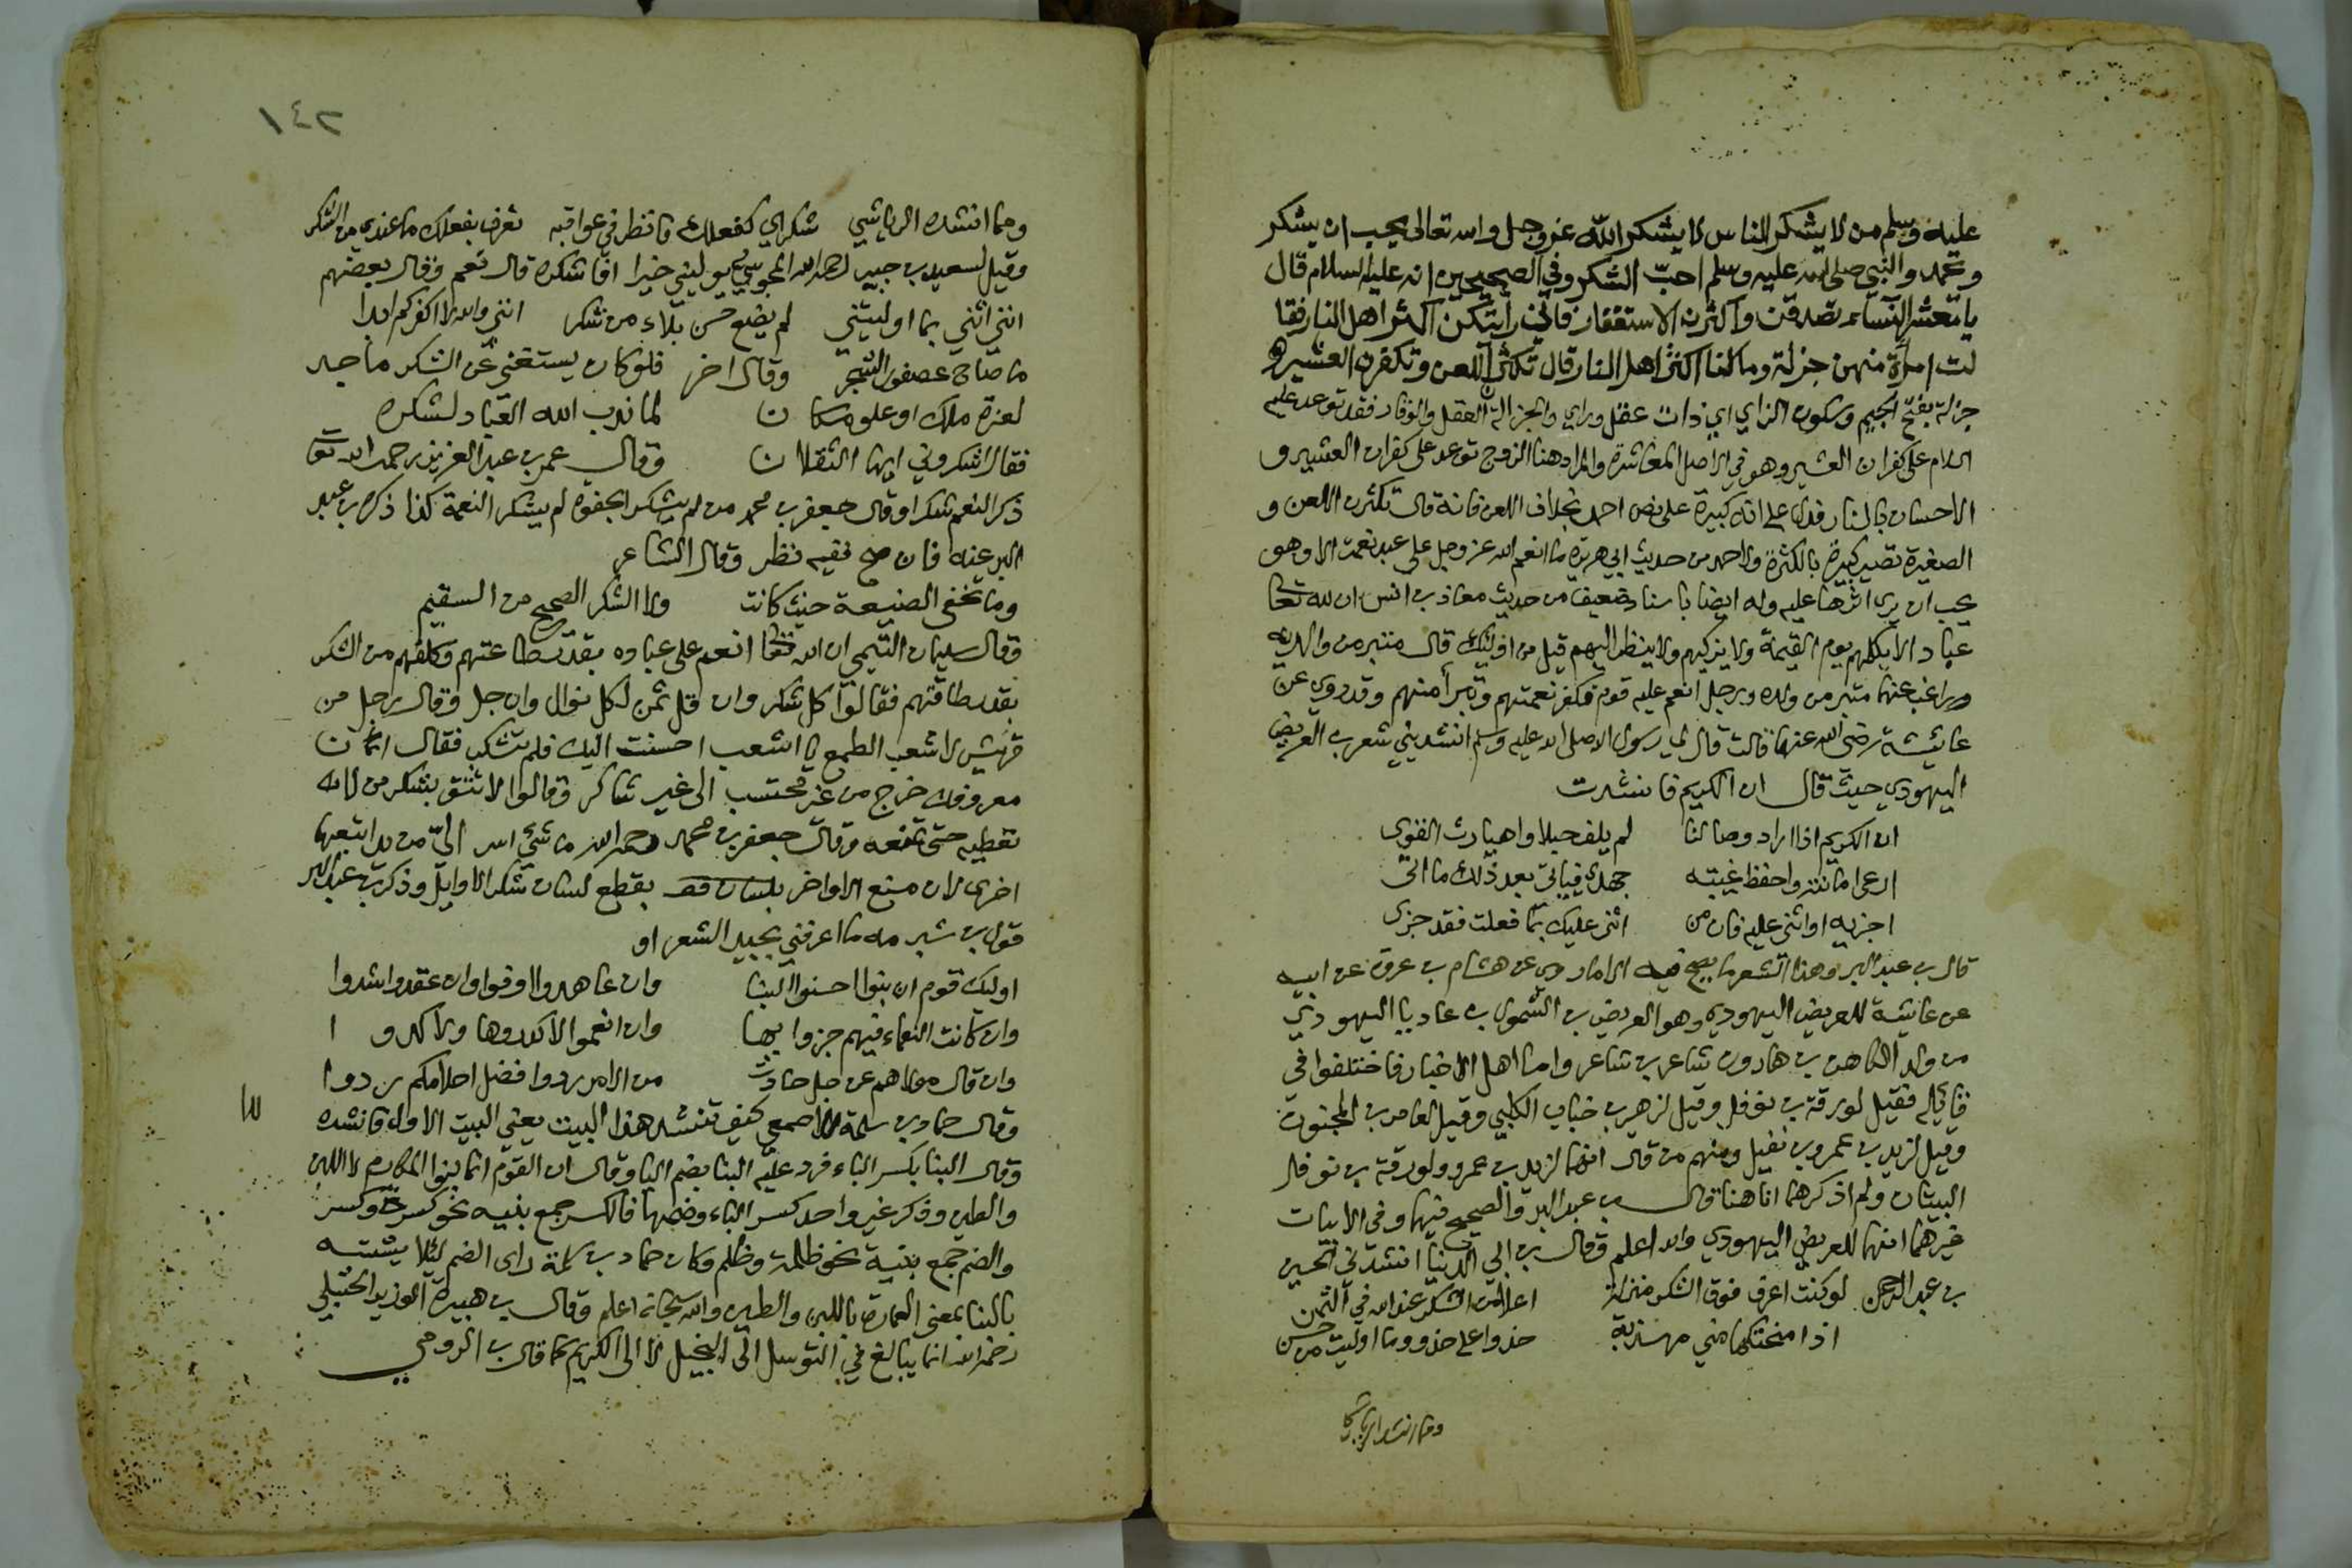 عليه وسلم من لا يشكر الناس لا يشكر الله عز وجل والله تعالى يحب ان يشكر
ويحمد والنبي صلى الله عليه وسلم احب الشكر وفي الصحيحين انه عليه السلام قال
يا معشر النساء تصدقن واكثرن الاستغفار فاني رايتكن اكثر اهل النار فقا
لت امرأة منهن جزلة وما لنا اكثر اهل النار قال تكثرن اللعن وتكفرن العشير
جزلة بفتح الجيم وسكون الزاي اي ذات عقل وراي والجزالة العقل والوقار فقد توعد عليه
السلام على كفران العشير وهو في الاصل المعاشرة والمراد هنا الزوج توعد على كفران العشير و
الاحسان بالنار فدل على انه كبيرة على نص احمد بخلاف اللعن فانه قال تكثرن اللعن و
الصغيرة تصير كبيرة بالكثرة ولاحمد من حديث ابي هريرة ما انعم الله عز وجل على عبد نعمة الا وهو
يحب ان يرى اثرها عليه وله ايضا باسناد ضعيف من حديث معاذ بن انس ان لله تعا
عباد الا يكلمهم يوم القيمة ولا يزكيهم ولا ينظر اليهم قيل من اوليك قال متبر من والديه
وراغب عنهما متبر من ولده ورجل انعم عليه قوم فكفر نعمتهم وتبرأ منهم وقد روي عن
عايشة رضي الله عنها قالت قال لي رسول الله صلى الله عليه وسلم انشديني شعر بن العريض
اليهودي حيث قال ان الكريم فانشدت
ان الكريم اذا اراد وصالنا لم يلف حبلا واهيا رث القوى
ارعى امانته واحفظ غيبته جهدي فياتي بعد ذلك ما اتى
اجزيه او اثني عليه فان من اثنى عليك بما فعلت فقد جزى
قال بن عبد البر وهذا الشعر ما يصح فيه الا ما روي عن هشام بن عروة عن ابيه
عن عايشة للعريض اليهودي وهو العريض بن السموال بن عاديا اليهودي
من ولد الكاهن بن هارون شاعر بن شاعر واما اهل الاخبار فاختلفوا في
قايله فقيل لورقة بن نوفل وقيل لزهير بن خباب الكلبي وقيل لعامر بن المجنون
وقيل لزيد بن عمرو بن نفيل ومنهم من قال انهما لزيد بن عمرو ولورقة بن نوفل
البيتان ولم اذكرهما انا هنا قال بن عبد البر والصحيح فيهما وفي الابيات
غيرهما انها للعريض اليهودي والله اعلم وقال بن ابي الدنيا انشدني الحسين
بن عبد الرحمن لو كنت اعرف فوق الشكر منزلة اعلا من الشكر عند الله في الثمن
اذا منحتكها مني مهذبة حذوا على حذو وما اوليت من حسن
ومما انشده الرياشي
١٤٢
ومما انشده الرياشي شكراي كفعلك فانظر في عواقبه تعرف بفعلك ما عندي من الشكر
وقيل لسعيد بن جبير رحمه الله المجوسي يوليني خيرا افاشكره قال نعم وقال بعضهم
انني اثني بما اوليتني لم يضع حسن بلاء من شكر انني والله لا اكفركم ابدا
ما صاح عصفور الشجر وقال اخر فلو كان يستغني عن الشكر ماجد
لعزة ملك او علو مكان لما ندب الله العباد لشكره
فقال اشكروني ايها الثقلان وقال عمر بن عبد العزيز رحمه الله تعا
ذكر النعم شكرا وقال جعفر بن محمد من لم يشكر الجفوة لم يشكر النعمة كذا ذكره بن عبد
البر عنه فان صح ففيه نظر وقال الشاعر
وما تخفى الصنيعة حيث كانت ولا الشكر الصحيح من السقيم
وقال سليمان التيمي ان الله تعا انعم على عباده بقدر طاعتهم وكلفهم من الشكر
بقدر طاقتهم فقالوا كل شكر وان قل ثمن لكل نوال وان جل وقال رجل من
قريش لاشعب الطمع يا اشعب احسنت اليك فلم تشكر فقال ان
معروفك خرج من غير محتسب الى غير شاكر وقالوا لا تثق بشكر من
تعطيه حتى تمنعه وقال جعفر بن محمد رحمه الله ما شيء اسر الي من يد اتبعها
اخرى لان منع الاواخر يقطع لسان شكر الاوايل وذكر بن عبد البر
قول بن شبرمه ما اعرفني بجيد الشعر او
اوليك قوم ان بنوا احسنوا البنا وان عاهدوا اوفوا وان عقدوا شدوا
وان كانت النعماء فيهم جزوا بها وان انعموا لا كدروها ولا كدوا
وان قال مولاهم عن جل حادث من الامر ردوا فضل احلامكم ردوا
وقال حماد بن سلمة للاصمعي كيف تنشد هذا البيت يعني البيت الاول فانشده
وقال البنا بكسر الباء فرد عليه البنا بضم البا وقال ان القوم انما بنوا المكارم لا اللبن
والطين وذكر غير واحد كسر الباء وضمها فالكسر جمع بنيه نحو كسرة وكسر
والضم جمع بنية نحو ظلمة وظلم وكان حماد بن سلمة راى الضم ليلا يشتبه
بالبنا بمعنى العمارة باللبن والطين والله سبحانه اعلم وقال بن هبيرة الوزير الحنبلي
رحمه الله انما يبالغ في التوسل الى البخيل لا الى الكريم كما قال بن الرومي